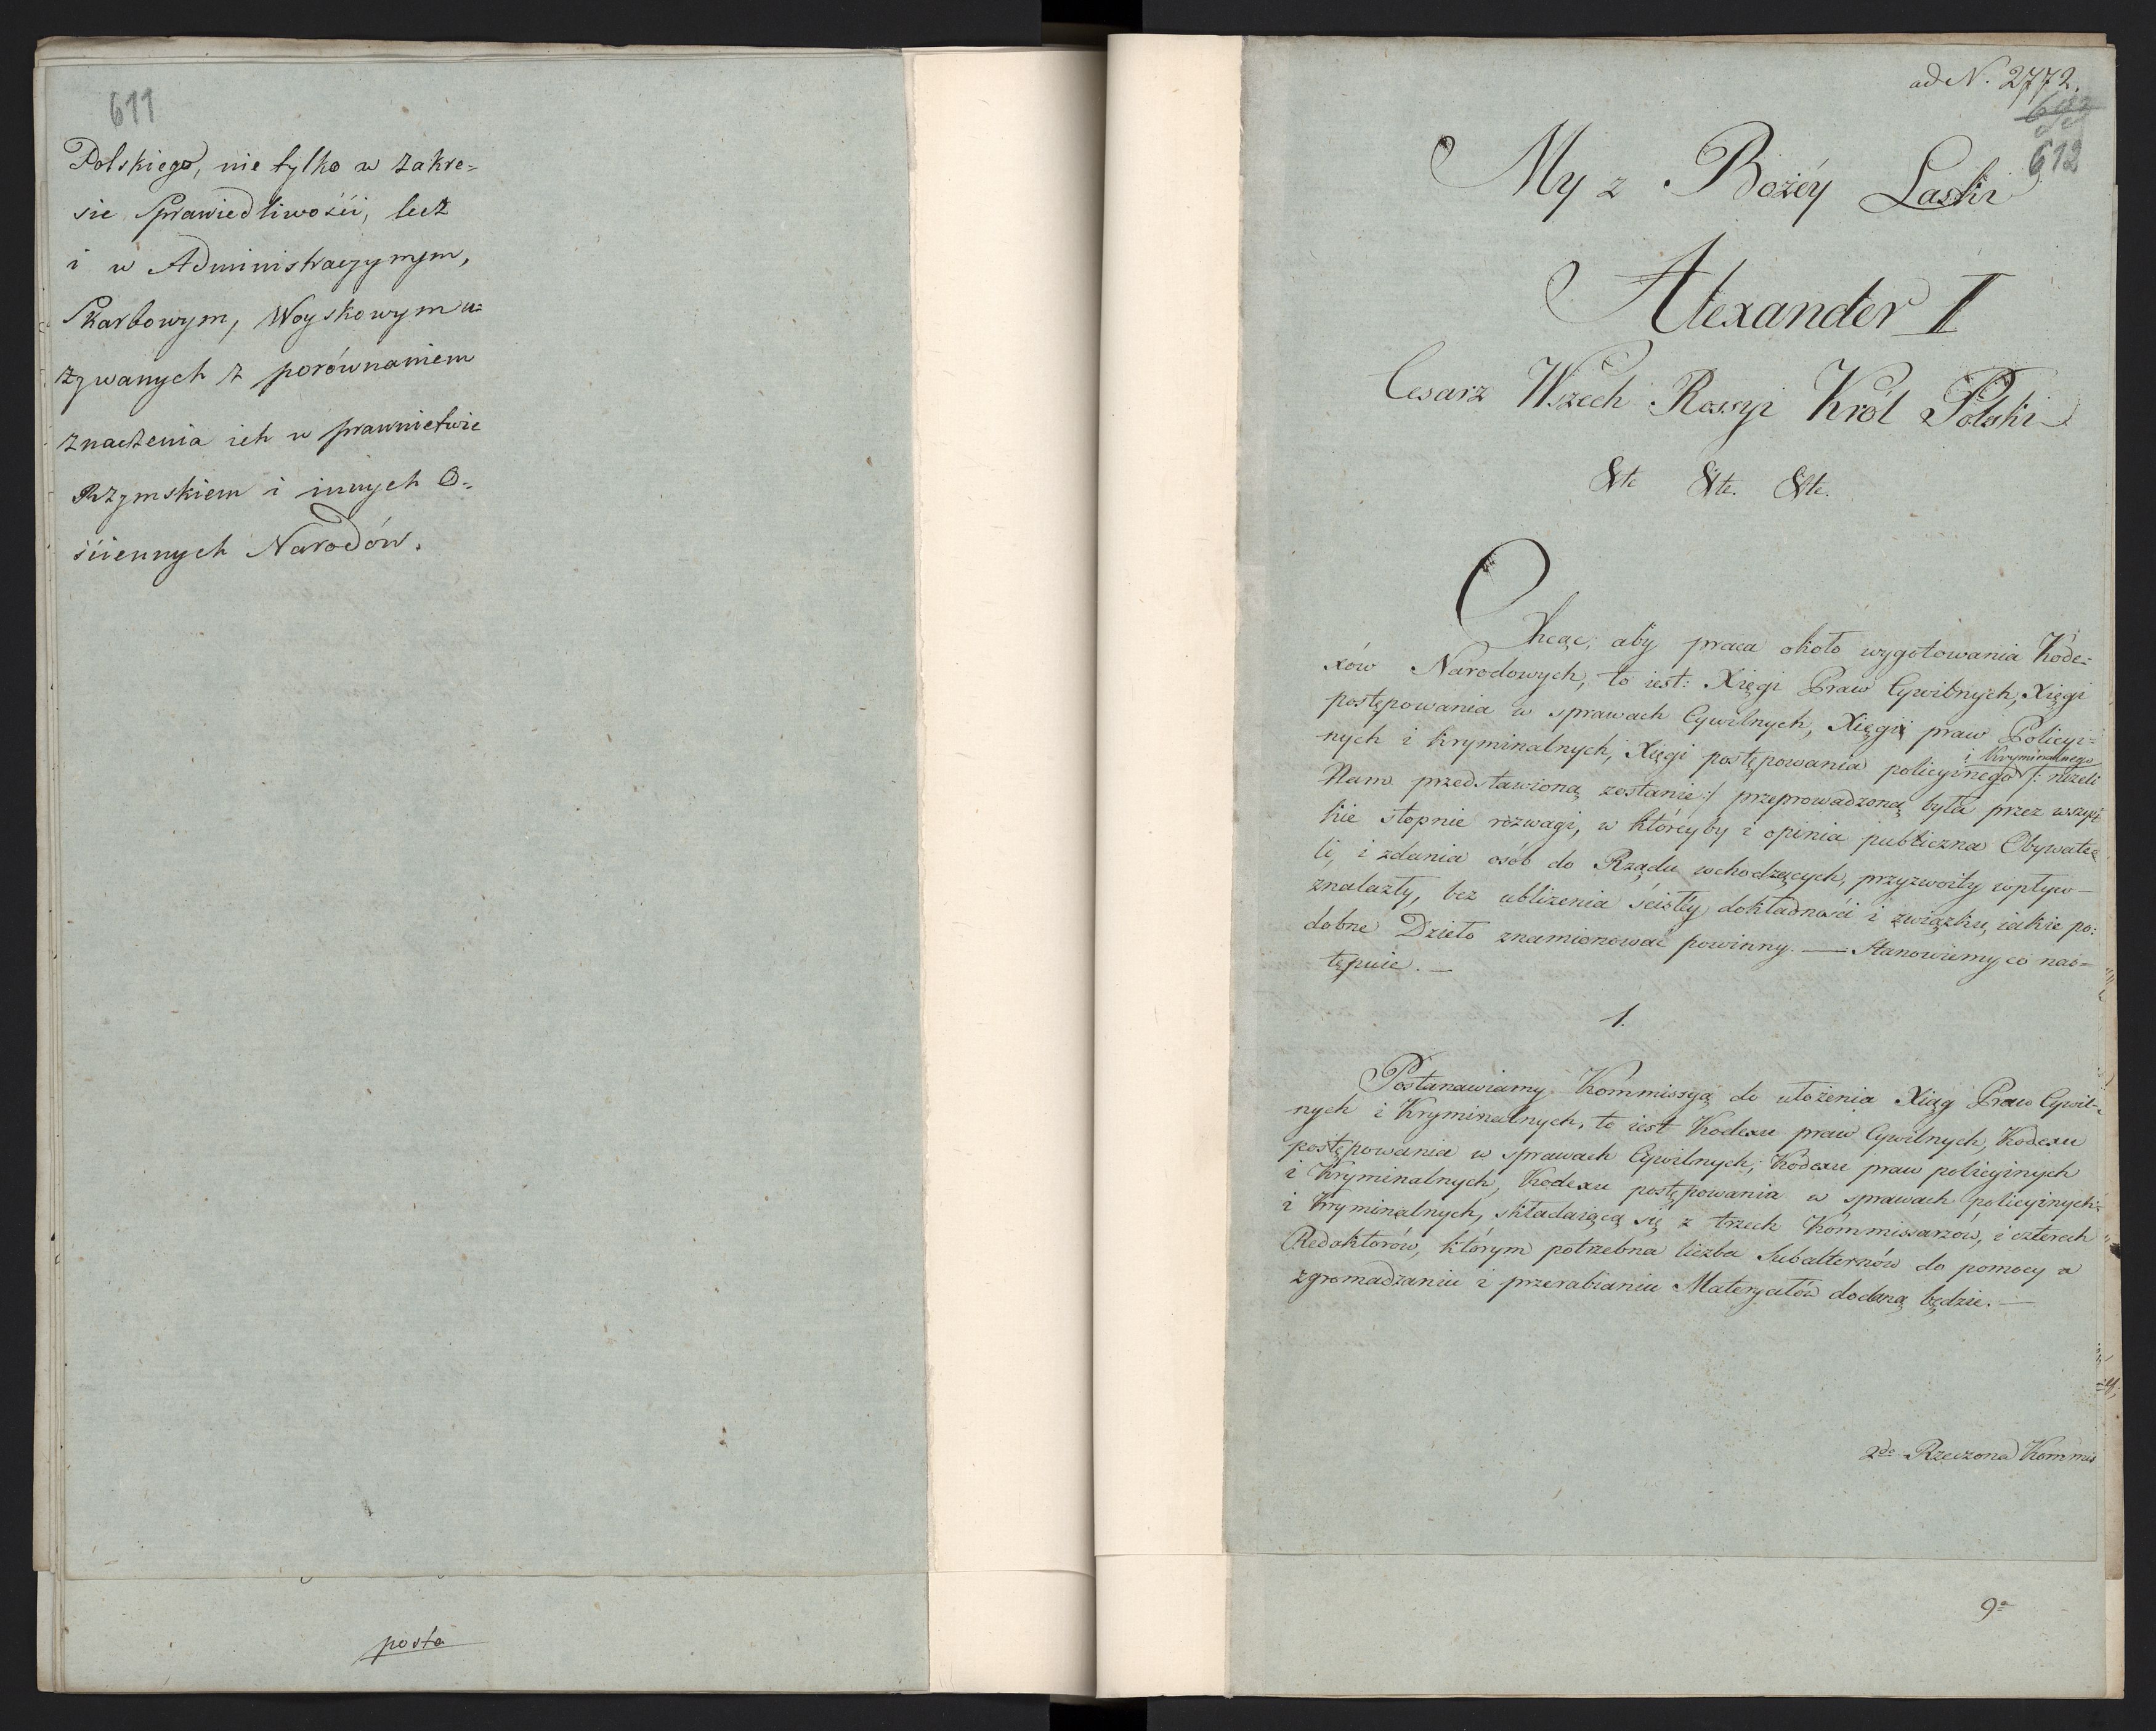 611
Polskiego, nie tylko w zakre-
sie Sprawiedliwości, lecz
i w Administracyynym,
Skarbowym, Woyskowym u=
żywanych z porównaniem
znaczenia ich w prawnictwie
Rzymskiem i innych O-
ściennych Narodów.
posta
ad N. 2772.
612
My z Bożéy Laski
Alexander I
Cesarz Wszech Rossyi Król Polski
&tc &tc. &tc.
Chcąc, aby praca około wygotowania Kode=
xów Narodowych, to iest: Xięgi Praw Cywilnych, Xięgi
postępowania w sprawach Cywilnych, Xięgi praw Policyi=
nych i kryminalnych, Xięgi postępowania policyinego /: niżeli
i Kryminalnego
Nam przedstawioną zostanie:/ przeprowadzoną była przez wszyst
kie stopnie rozwagi, w któreyby i opinia publiczna Obywate
li, i zdania osób do Rządu wchodzących, przyzwoity wpływ
znalazły, bez ubliżenia ścisłéy dokładności i związku, iakie po:
dobne Dzieło znamionować powinny. — Stanowiemy co nas=
tępuie. —
1.
Postanawiamy Kommissyą do ułożenia Xiąg Praw Cywil-
nych i Kryminalnych, to iest Kodexu praw Cywilnych, Kodexu
postępowania w sprawach Cywilnych, Kodexu praw policyinych
i Kryminalnych, Kodexu postępowania w sprawach policyinych
i Kryminalnych, składaiącą się z trzech Kommissarzów, i czterech
Redaktorów, którym potrzebna liczba Subalternów do pomocy w
zgromadzaniu i przerabianiu Materyałów dodaną będzie. —
2do Rzeczona Kommis
9a